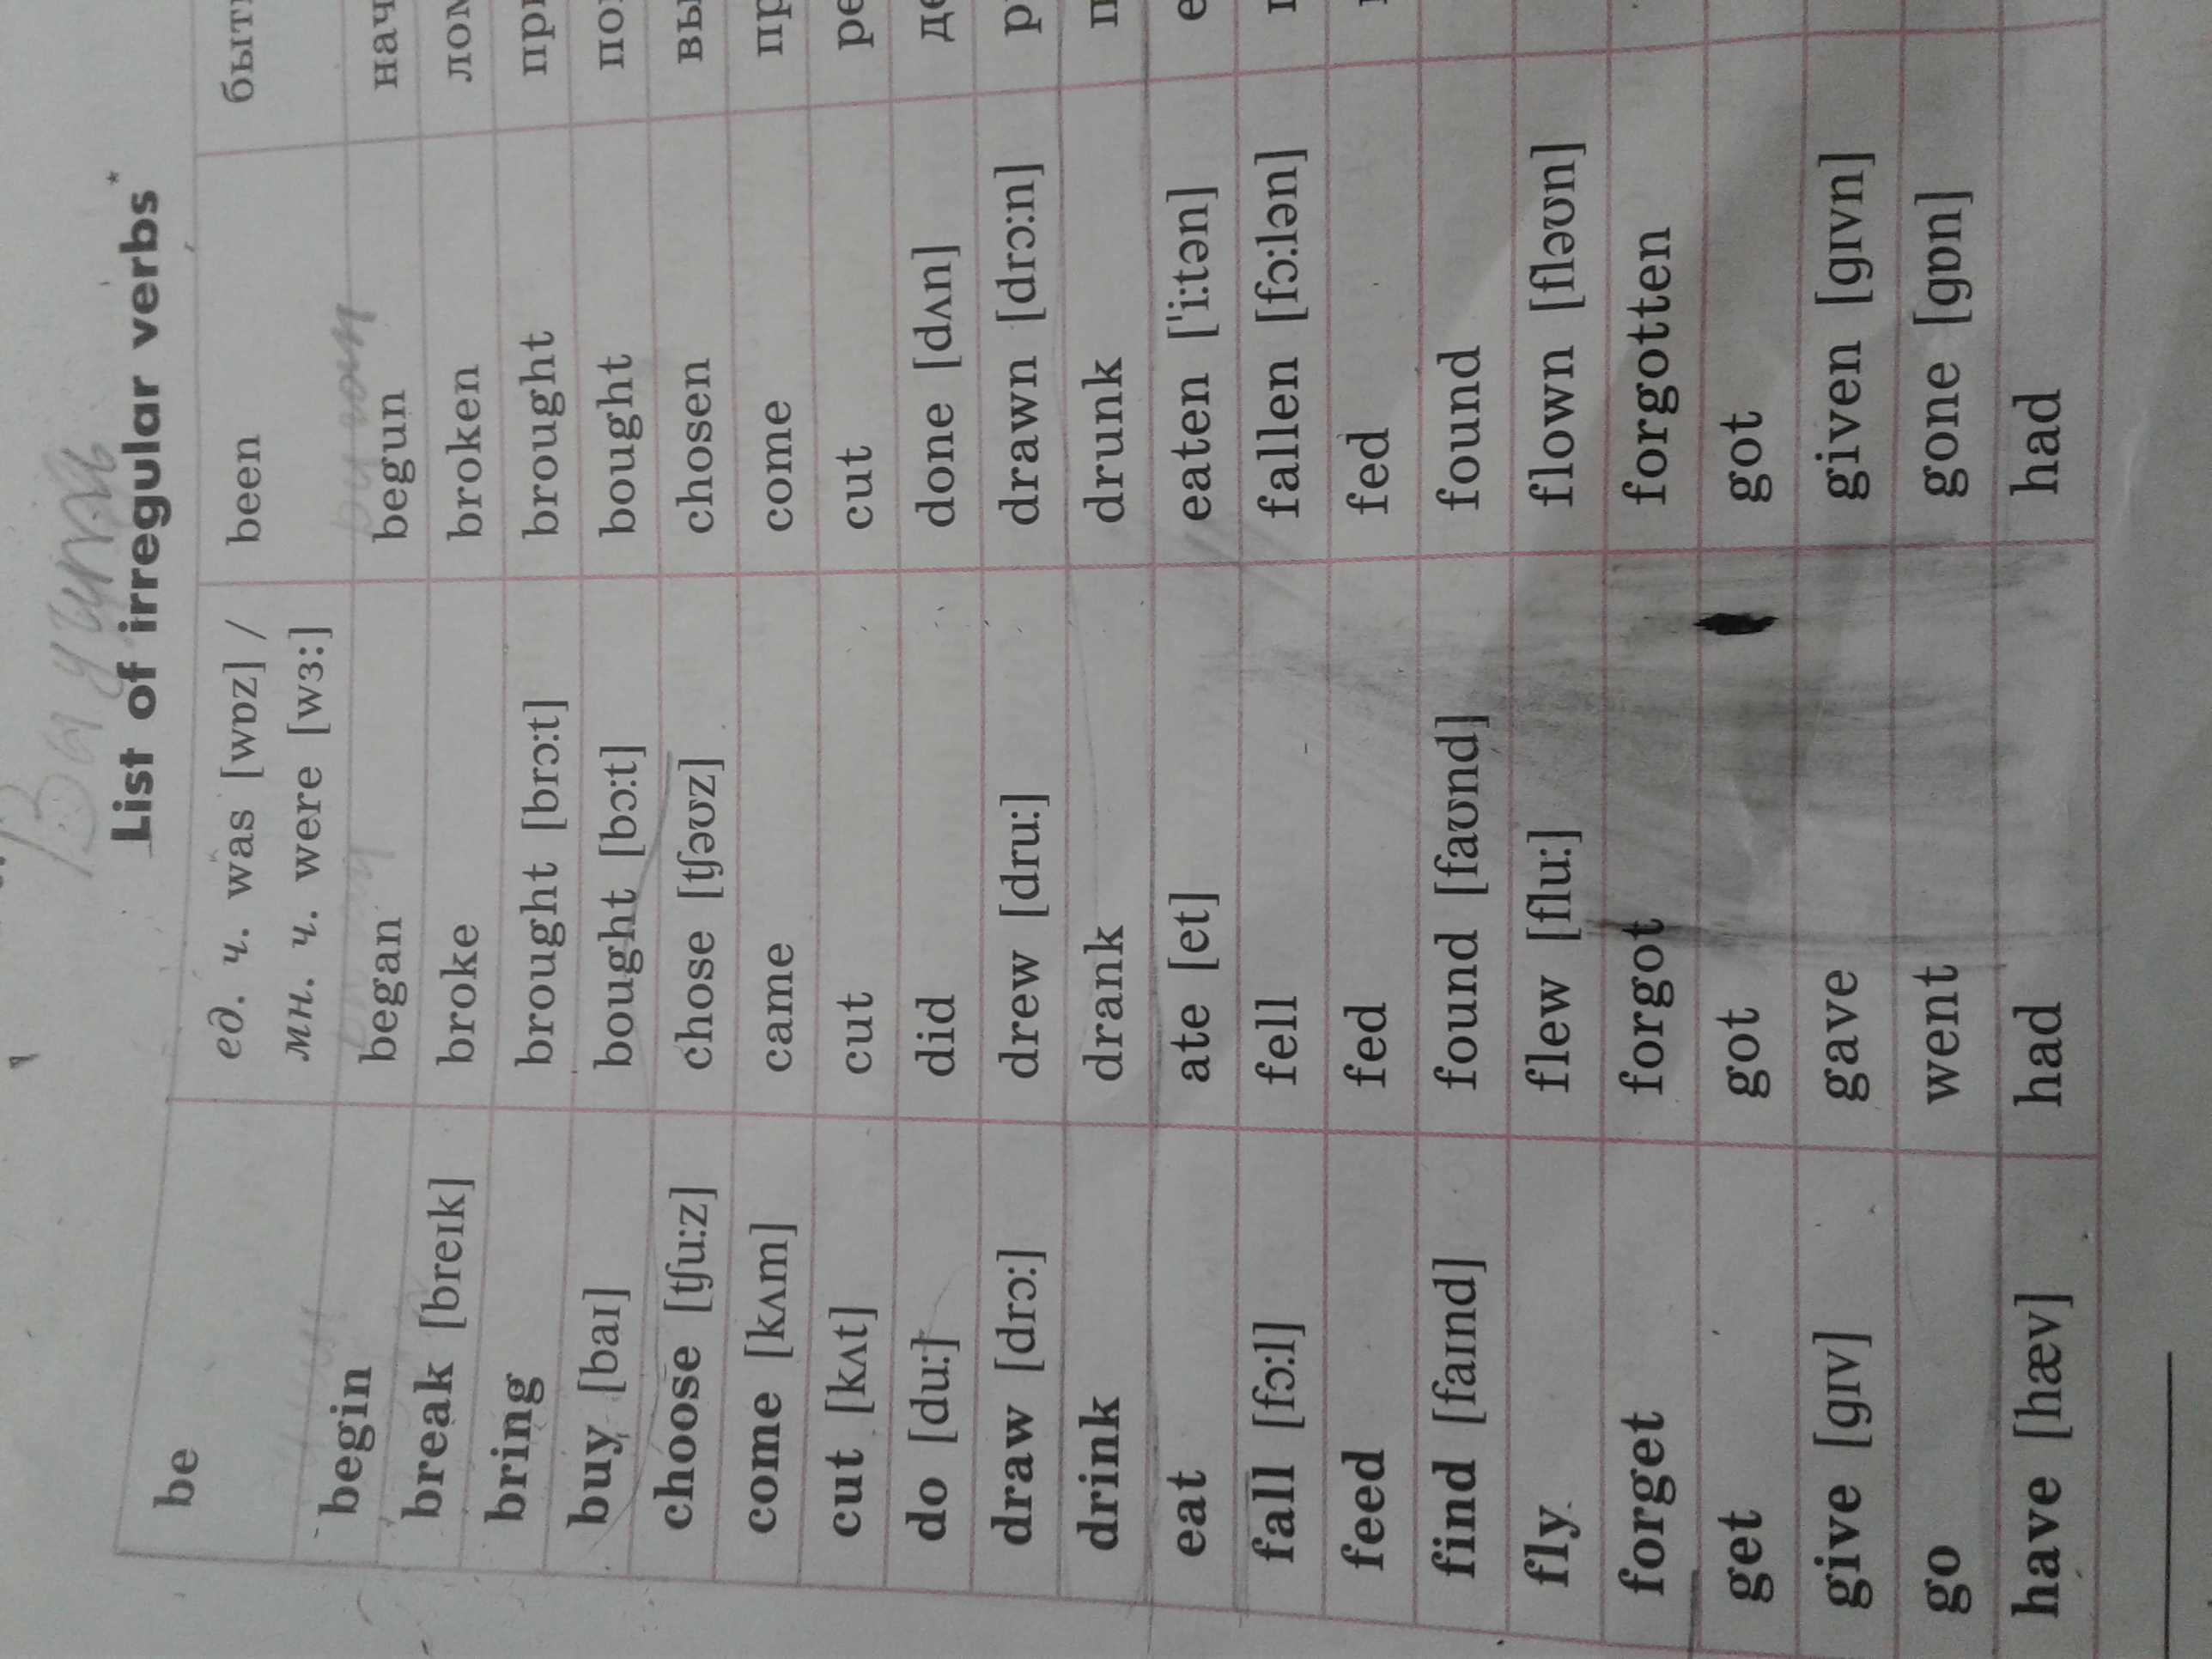 List of irregular verbs*
be ед. ч. was [wɒz] / been
мн. ч. were [wɜː]
begin began begun
break [breɪk] broke broken
bring brought [brɔːt] brought
buy [baɪ] bought [bɔːt] bought
choose [ʧuːz] chose [ʧəʊz] chosen
come [kʌm] came come
cut [kʌt] cut cut
do [duː] did done [dʌn]
draw [drɔː] drew [druː] drawn [drɔːn]
drink drank drunk
eat ate [et] eaten [ˈiːtən]
fall [fɔːl] fell fallen [fɔːlən]
feed fed fed
find [faɪnd] found [faʊnd] found
fly flew [fluː] flown [fləʊn]
forget forgot forgotten
get got got
give [gɪv] gave given [gɪvn]
go went gone [gɒn]
have [hæv] had had